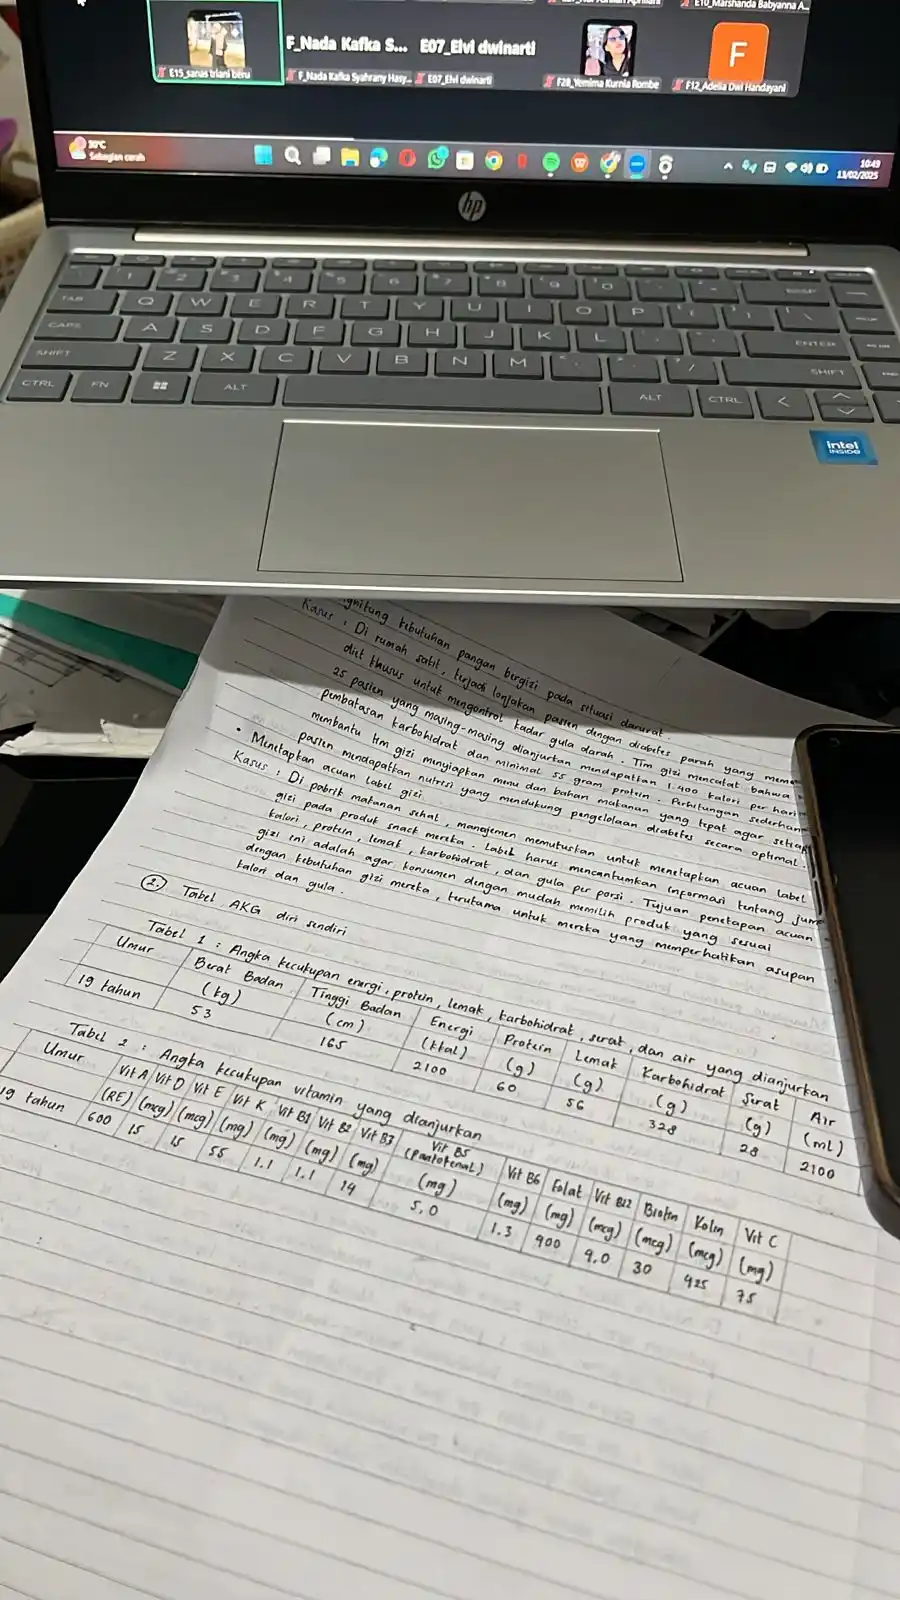 E10_Marshanda Babyanna A...
F_Nada Kafka S... E07_Elvi dwinarti
F
E15_sanas triani beru
F_Nada Kafka Syahrany Hasy...
E07_Elvi dwinarti
F28_Yemima Kurnia Rombe
F12_Adelia Dwi Handayani
30°C
Sebagian cerah
10:49
13/02/2025
hp
TAB Q W E R T Y U I O P
CAPS A S D F G H J K L ENTER
SHIFT Z X C V B N M SHIFT
CTRL FN ALT ALT CTRL
intel
INSIDE
kebutuhan pangan bergizi pada situasi darurat
Kasus : Di rumah sakit, terjadi lonjakan pasien dengan diabetes parah yang
diet khusus untuk mengontrol kadar gula darah. Tim gizi mencatat bahwa
25 pasien yang masing-masing dianjurkan mendapatkan 1.400 kalori per hari
pembatasan karbohidrat dan minimal 55 gram protein. Perhitungan
membantu tim gizi menyiapkan menu dan bahan makanan yang tepat agar setiap
pasien mendapatkan nutrisi yang mendukung pengelolaan diabetes secara optimal.
• Menetapkan acuan label gizi
Kasus : Di pabrik makanan sehat, manajemen memutuskan untuk menetapkan acuan label
gizi pada produk snack mereka. Label harus mencantumkan informasi tentang
kalori, protein, lemak, karbohidrat, dan gula per porsi. Tujuan penetapan acuan
gizi ini adalah agar konsumen dengan mudah memilih produk yang sesuai
dengan kebutuhan gizi mereka, terutama untuk mereka yang memperhatikan asupan
kalori dan gula.
2. Tabel AKG diri sendiri
Tabel 1 : Angka kecukupan energi, protein, lemak, karbohidrat, serat, dan air yang dianjurkan
Umur Berat Badan (kg) Tinggi Badan (cm) Energi (kkal) Protein (g) Lemak (g) Karbohidrat (g) Serat (g) Air (mL)
19 tahun 53 165 2100 60 56 328 28 2100
Tabel 2 : Angka kecukupan vitamin yang dianjurkan
Umur Vit A (RE) Vit D (mcg) Vit E (mcg) Vit K (mg) Vit B1 (mg) Vit B2 (mg) Vit B3 (mg) Vit B5 (Pantotenal) (mg) Vit B6 (mg) Folat (mg) Vit B12 (mcg) Biotin (mcg) Kolin (mcg) Vit C (mg)
19 tahun 600 15 15 55 1.1 1.1 14 5.0 1.3 400 4.0 30 425 75